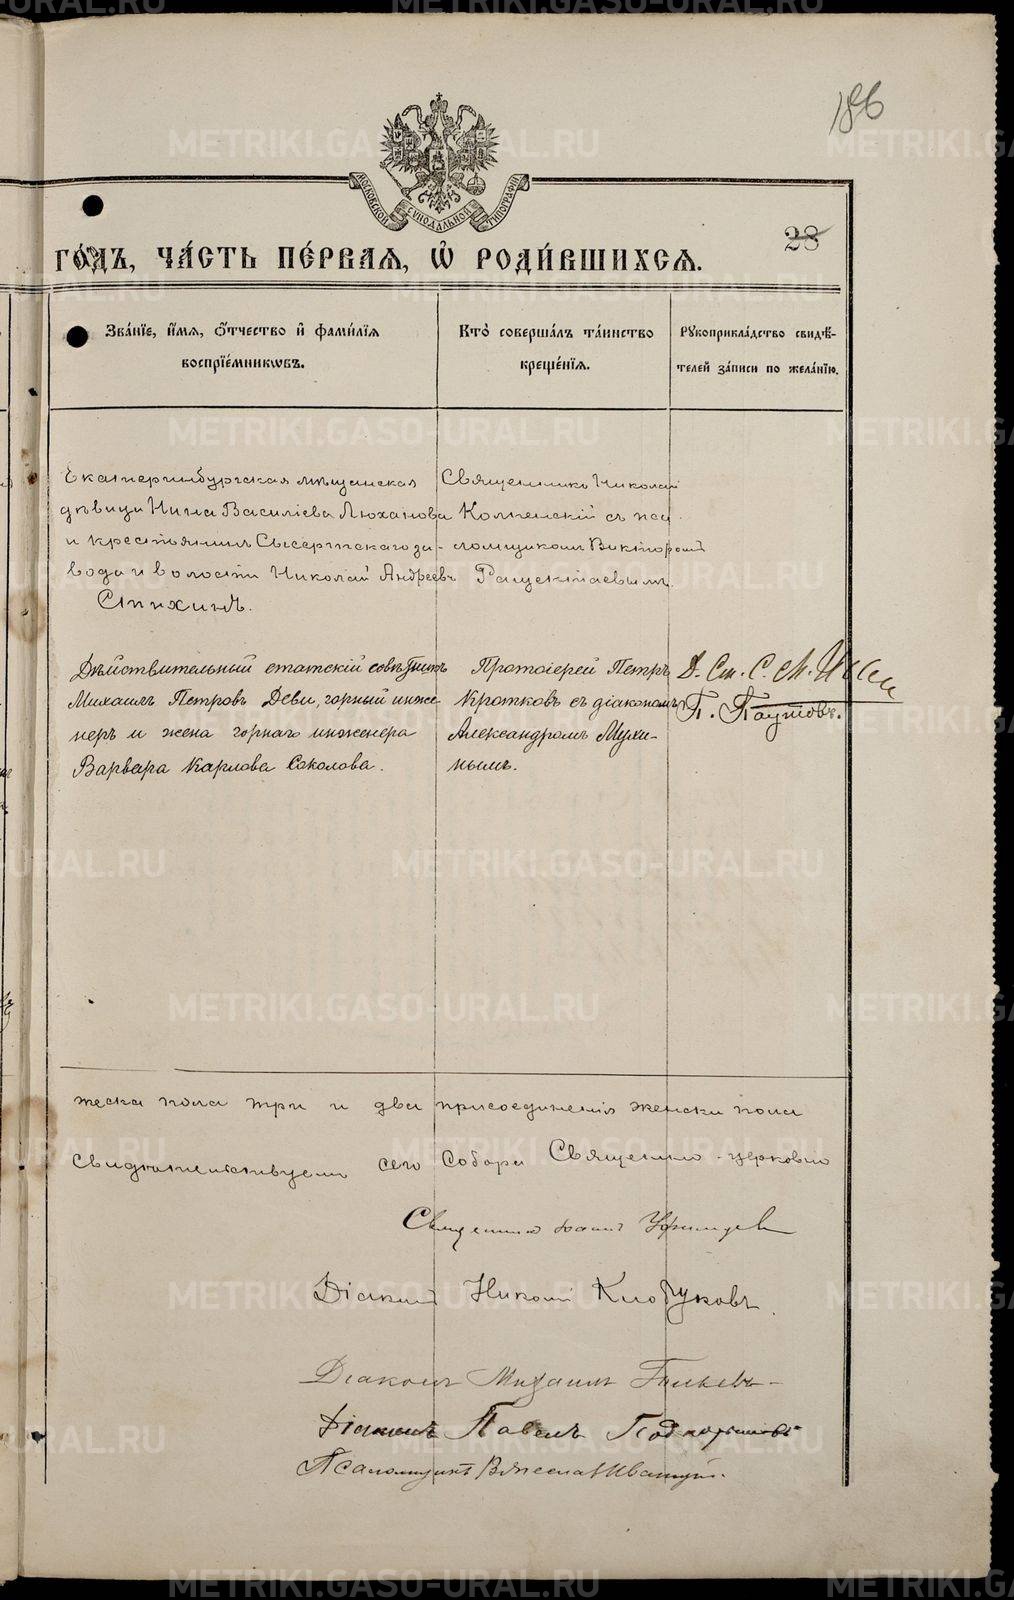 186
МОСКОВСКОЙ СУНОДАЛЬНОЙ ТИПОГРАФІИ
28
ГО́ДЪ, ЧА́СТЬ ПЕ́РВАЯ, Ѡ҆ РОДИ́ВШИХСЯ.
Зва́нїе, и҆́мя, ѻ҆́тчество и҆ фами́лїя
воспрїе́мникѡвъ.
Кто̀ соверша́лъ та́инство
креще́нїя.
Рꙋкоприкла́дство свидѣ́-
телей за́писи по жела́нїю.
Екатеринбургская мѣщанская
дѣвица Нина Василіева Люханова
и крестьянинъ Сысертскаго за-
вода и волости Николай Андреевъ
Спихинъ.
Священникъ Николай
съ пса
ломщикомъ Викторомъ
Дѣйствительный статскій совѣтникъ
Михаилъ Петровъ Деви, горный инже-
неръ и жена горнаго инженера
Варвара Карлова Соколова.
Протоіерей Петръ
Кротковъ съ діакономъ
Александромъ Мухи-
нымъ.
Д. Ст. С. М. И
П. Паутовъ.
жеска пола три и два присоединенія женска пола
Свидѣтельствуемъ сего Собора Священно-церковно
Священникъ Іоаннъ Уфимцев
Діаконъ Николай Клобуковъ.
Діаконъ Михаилъ
Діаконъ Павелъ
Псаломщикъ Вячеслав
METRIKI.GASO-URAL.RU